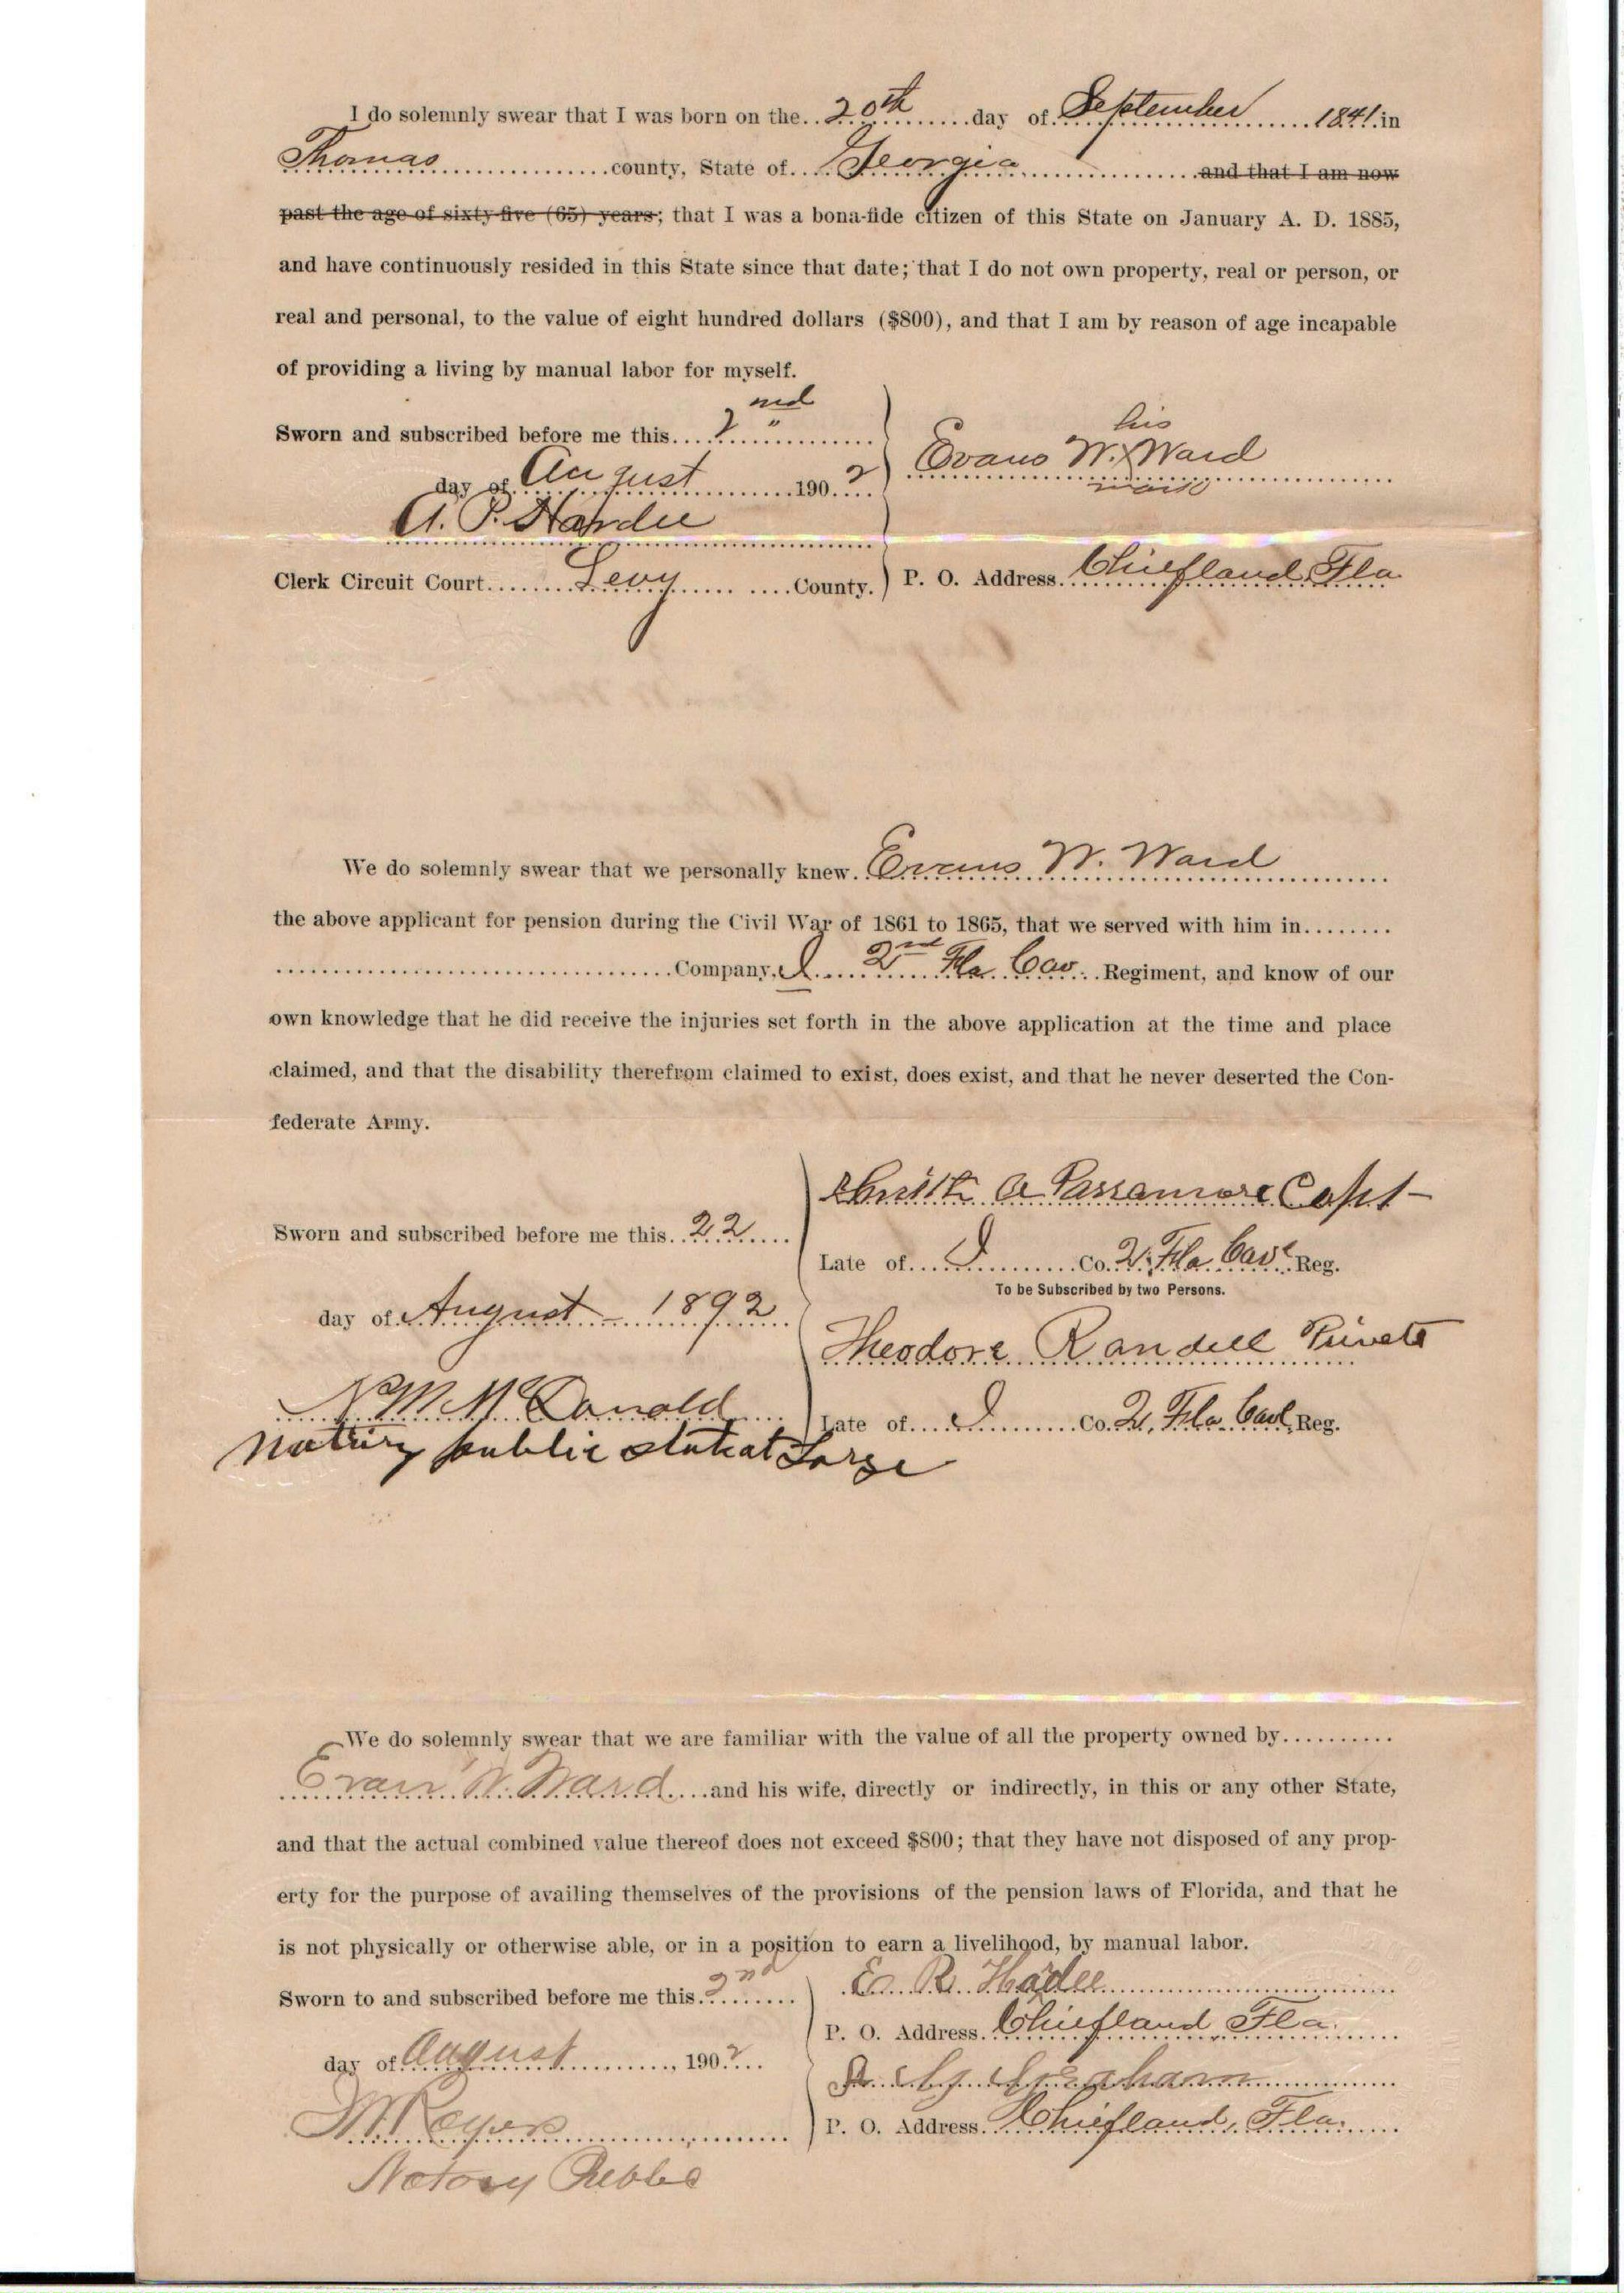 I do solemnly swear that I was born on the 20th day of September 1841 in
Thomas county, State of Georgia and that I am now
past the age of sixty-five (65) years; that I was a bona-fide citizen of this State on January A. D. 1885,
and have continuously resided in this State since that date; that I do not own property, real or person, or
real and personal, to the value of eight hundred dollars ($800), and that I am by reason of age incapable
of providing a living by manual labor for myself.
Sworn and subscribed before me this 2nd
day of August 1902
A. P. Hardee
Clerk Circuit Court Levy County.
his
Evans W. X Ward
mark
P. O. Address Chiefland Fla
We do solemnly swear that we personally knew Evans W. Ward
the above applicant for pension during the Civil War of 1861 to 1865, that we served with him in
Company, I 2nd Fla Cav. Regiment, and know of our
own knowledge that he did receive the injuries set forth in the above application at the time and place
claimed, and that the disability therefrom claimed to exist, does exist, and that he never deserted the Con-
federate Army.
Sworn and subscribed before me this 22
day of August - 1892
N M McDonald
Notriry public stat at Large
A Passamore Capt
Late of I Co. 2, Fla. Cav Reg.
To be Subscribed by two Persons.
Theodore Randell Private
Late of I Co. 2, Fla. Cavl Reg.
We do solemnly swear that we are familiar with the value of all the property owned by
Evan W. Ward and his wife, directly or indirectly, in this or any other State,
and that the actual combined value thereof does not exceed $800; that they have not disposed of any prop-
erty for the purpose of availing themselves of the provisions of the pension laws of Florida, and that he
is not physically or otherwise able, or in a position to earn a livelihood, by manual labor.
Sworn to and subscribed before me this 2nd
day of August, 1902
Notary Public
E. R.
P. O. Address Chiefland Fla.
P. O. Address Chiefland, Fla.